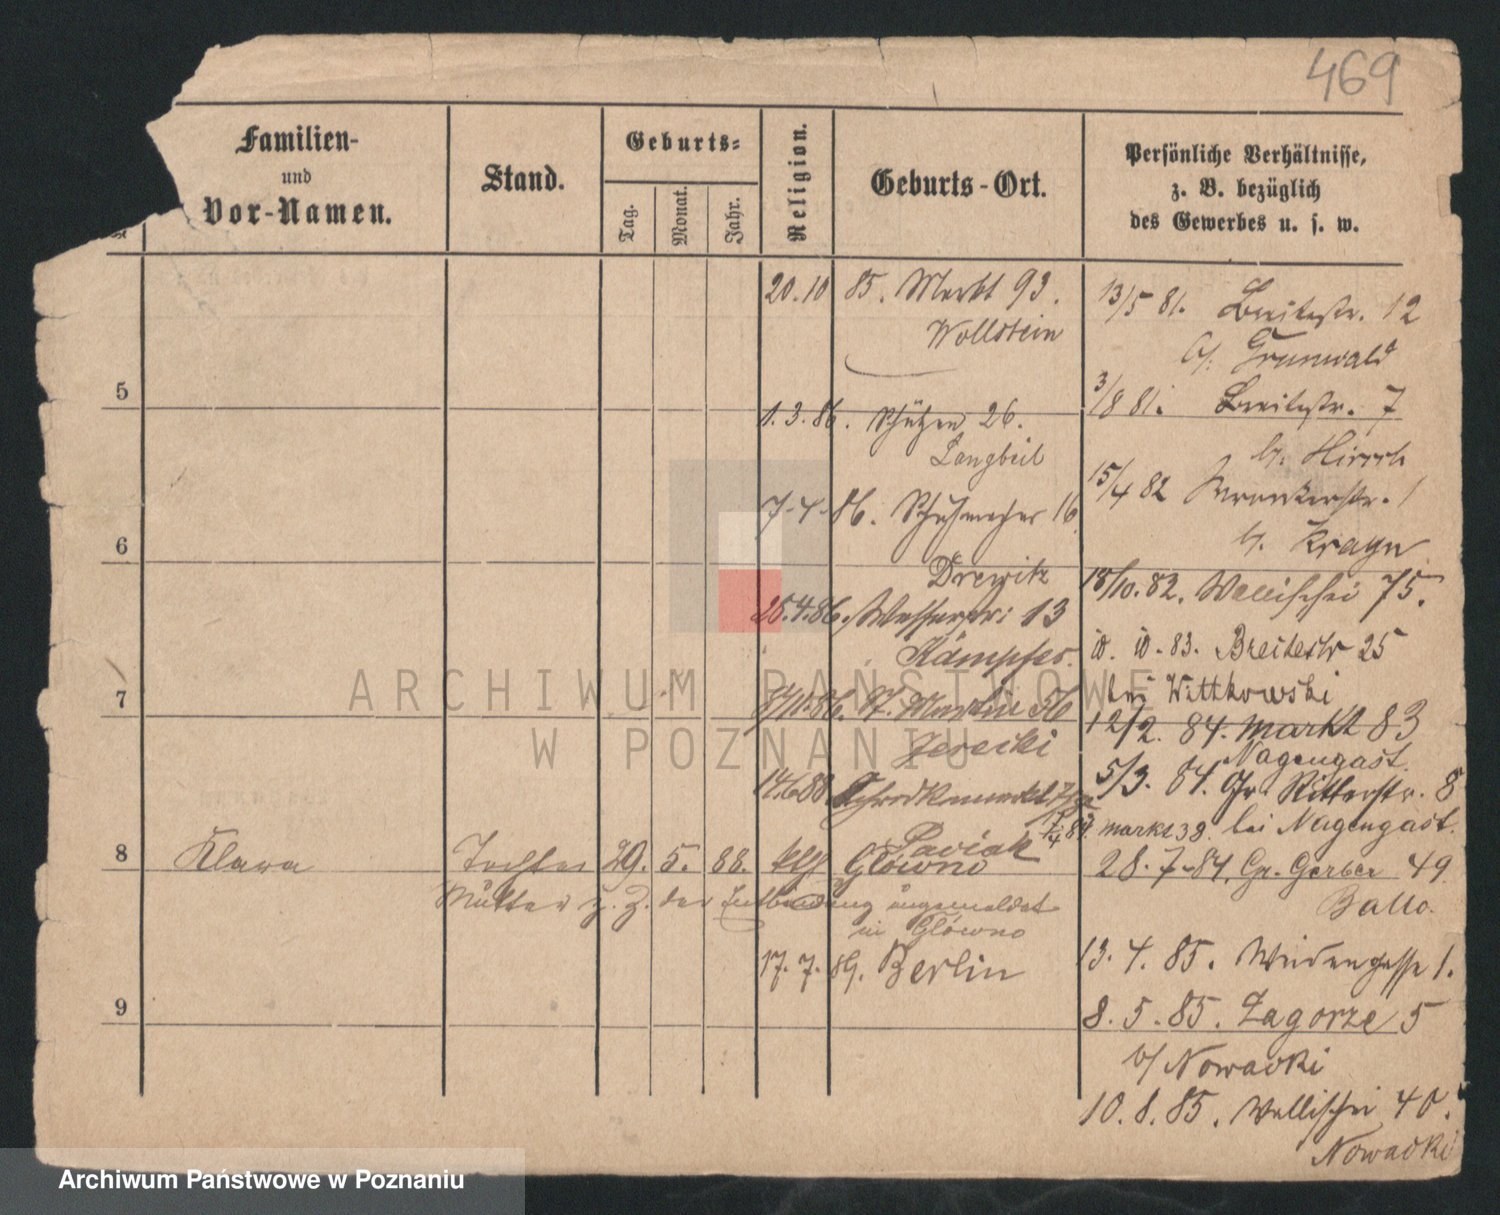 469
Familien-
und
Vor-Namen.
Stand.
Geburts-
Tag.
Monat.
Jahr.
Religion.
Geburts-Ort.
Persönliche Verhältnisse,
z. B. bezüglich
des Gewerbes u. s. w.
5
6
7
8 Klara Tochter 29. 5. 88. kth Główno
Mutter z. Z. der Entbindung angemeldet
in Główno
9
20.10 85. Markt 93.
Wollstein
1.3.86. Schützen 26.
Langbeil
7-4-86. Schuhmacher 16
Drewitz
25.4.86. Wasserstr: 13
Kämpfer.
86. St. Martin 56
Jerecki
14.6.88.
Paviak
17.7.89. Berlin
13/5 81. Breitestr. 12
b/. Grunwald
3/8 81. Breitestr. 7
b/. Hirsch
15/4 82 Wronkerstr. 1
b/. Krayn
18/10.82. Wallischei 75.
10. 10. 83. Breitestr 25
bei Wittkowski
12/2. 84. Markt 83
Nagengast.
5/3. 84. Gr. Ritterstr. 8
7/4 84. Markt 38. bei Nagengast.
28.7-84. Gr. Gerber 49
Ballo.
13.4.85. Weidengasse 1.
8.5.85. Zagorze 5
b/ Nowacki
10.8.85. Wallischei 40.
Nowacki
ARCHIWUM PAŃSTWOWE
W POZNANIU
Archiwum Państwowe w Poznaniu